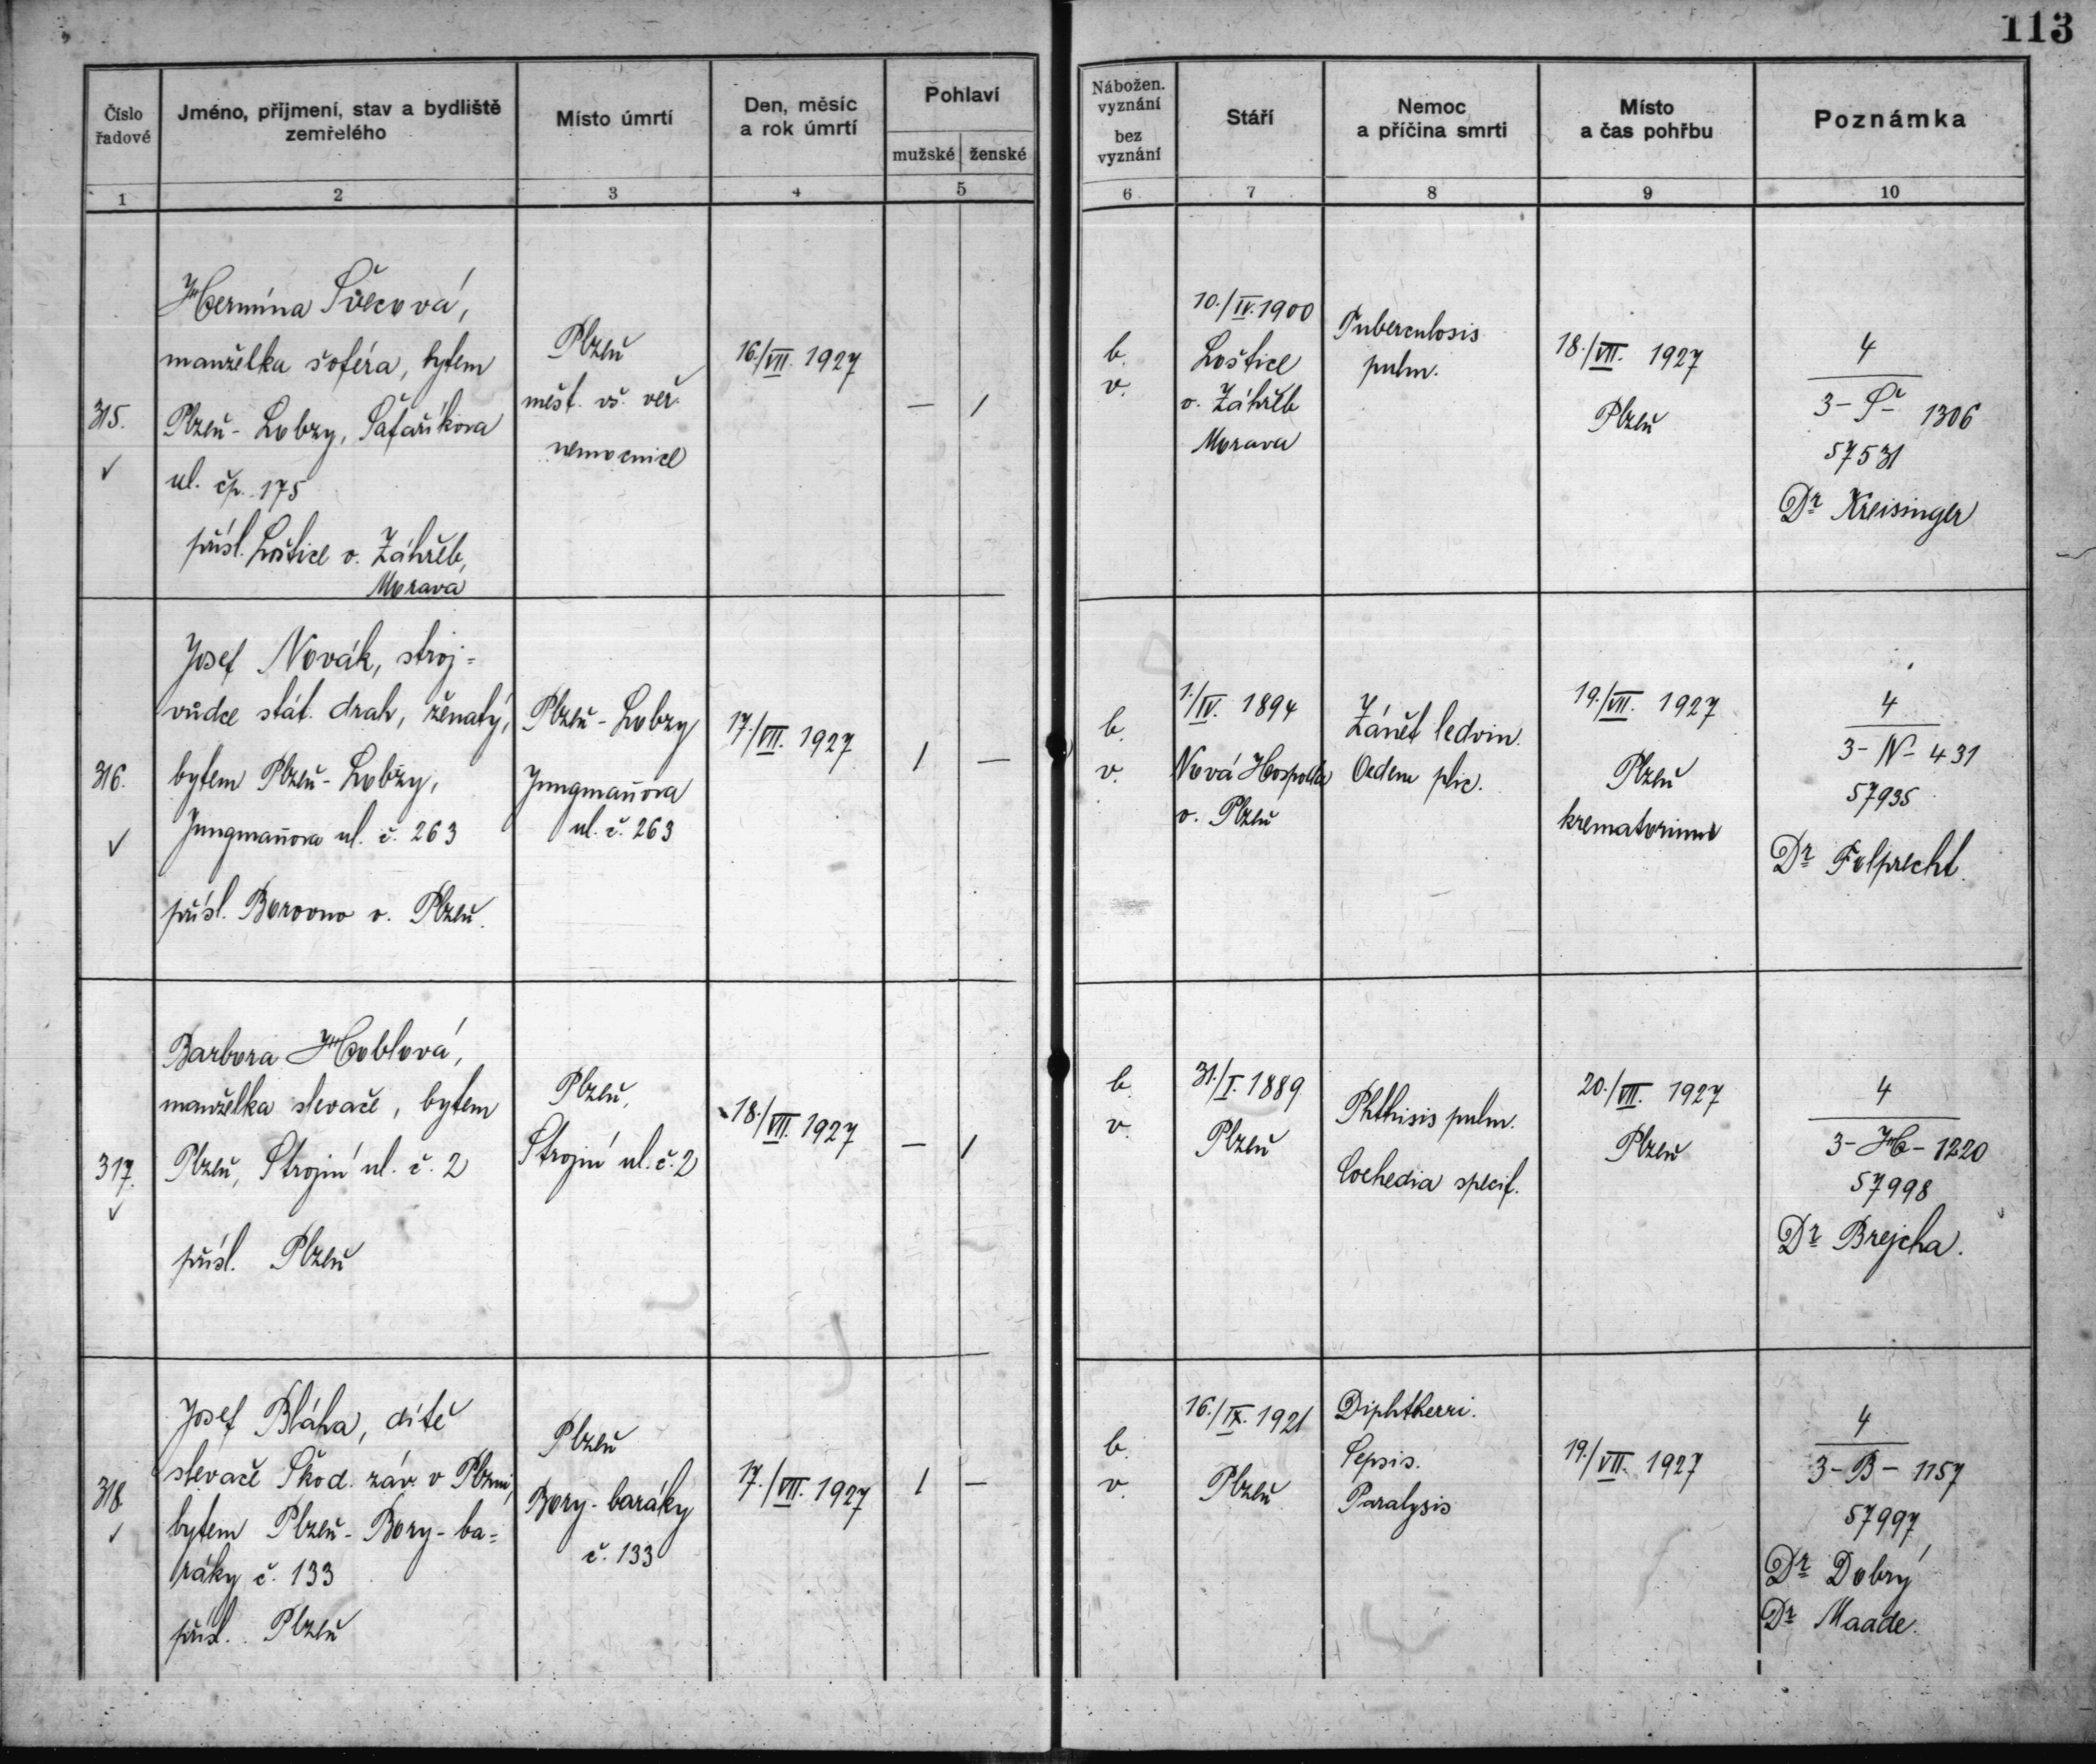 113
Číslo
řadové
Jméno, příjmení, stav a bydliště
zemřelého
Místo úmrtí
Den, měsíc
a rok úmrtí
Pohlaví
mužské ženské
Nábožen.
vyznání
bez
vyznání
Stáří
Nemoc
a příčina smrti
Místo
a čas pohřbu
Poznámka
1 2 3 4 5 6 7 8 9 10
315.
✓
Hermína Švecová,
manželka šoféra, bytem
Plzeň - Lobzy, Šafaříkova
ul. čp. 175
přísl. Loštice o. Zábřeh,
Morava
Plzeň
měst. vš. veř.
nemocnice
16./VII. 1927
— /
b.
v.
10./IV. 1900
Loštice
o. Zábřeh
Morava
Tuberculosis
pulm.
18./VII. 1927
Plzeň
4
3 - Š - 1306
57531
Dr Kreisinger
316.
✓
Josef Novák, stroj=
vůdce stát. drah, ženatý,
bytem Plzeň - Lobzy,
Jungman̄ova ul. č. 263
přísl. Borovno o. Plzeň.
Plzeň - Lobzy
Jungman̄ova
ul. č. 263
17./VII. 1927
/ —
b.
v.
1./IV. 1894
Nová Hospoda
o. Plzeň
Zánět ledvin.
Oedem plic.
19./VII. 1927
Plzeň
krematorium
4
3 - N - 431
57935
Dr Folprecht.
317.
✓
Barbora Hoblová,
manželka slevače, bytem
Plzeň, Strojní ul. č. 2
přísl. Plzeň
Plzeň,
Strojní ul. č. 2
18./VII. 1927
— /
b.
v.
31./I. 1889
Plzeň
Phthisis pulm.
specif.
20./VII. 1927
Plzeň
4
3 - H - 1220
57998
Dr Brejcha.
318.
✓
Josef Bláha, dítě
slevače Škod. záv. v Plzni,
bytem Plzeň - Bory - ba=
ráky č. 133
přísl. Plzeň
Plzeň
Bory - baráky
č. 133
17./VII. 1927
/ —
b.
v.
16./IX. 1921
Plzeň
Diphtherri.
Sepsis.
Paralysis
19./VII. 1927
4
3 - B - 1157
57997
Dr Dobrý
Dr Maade.